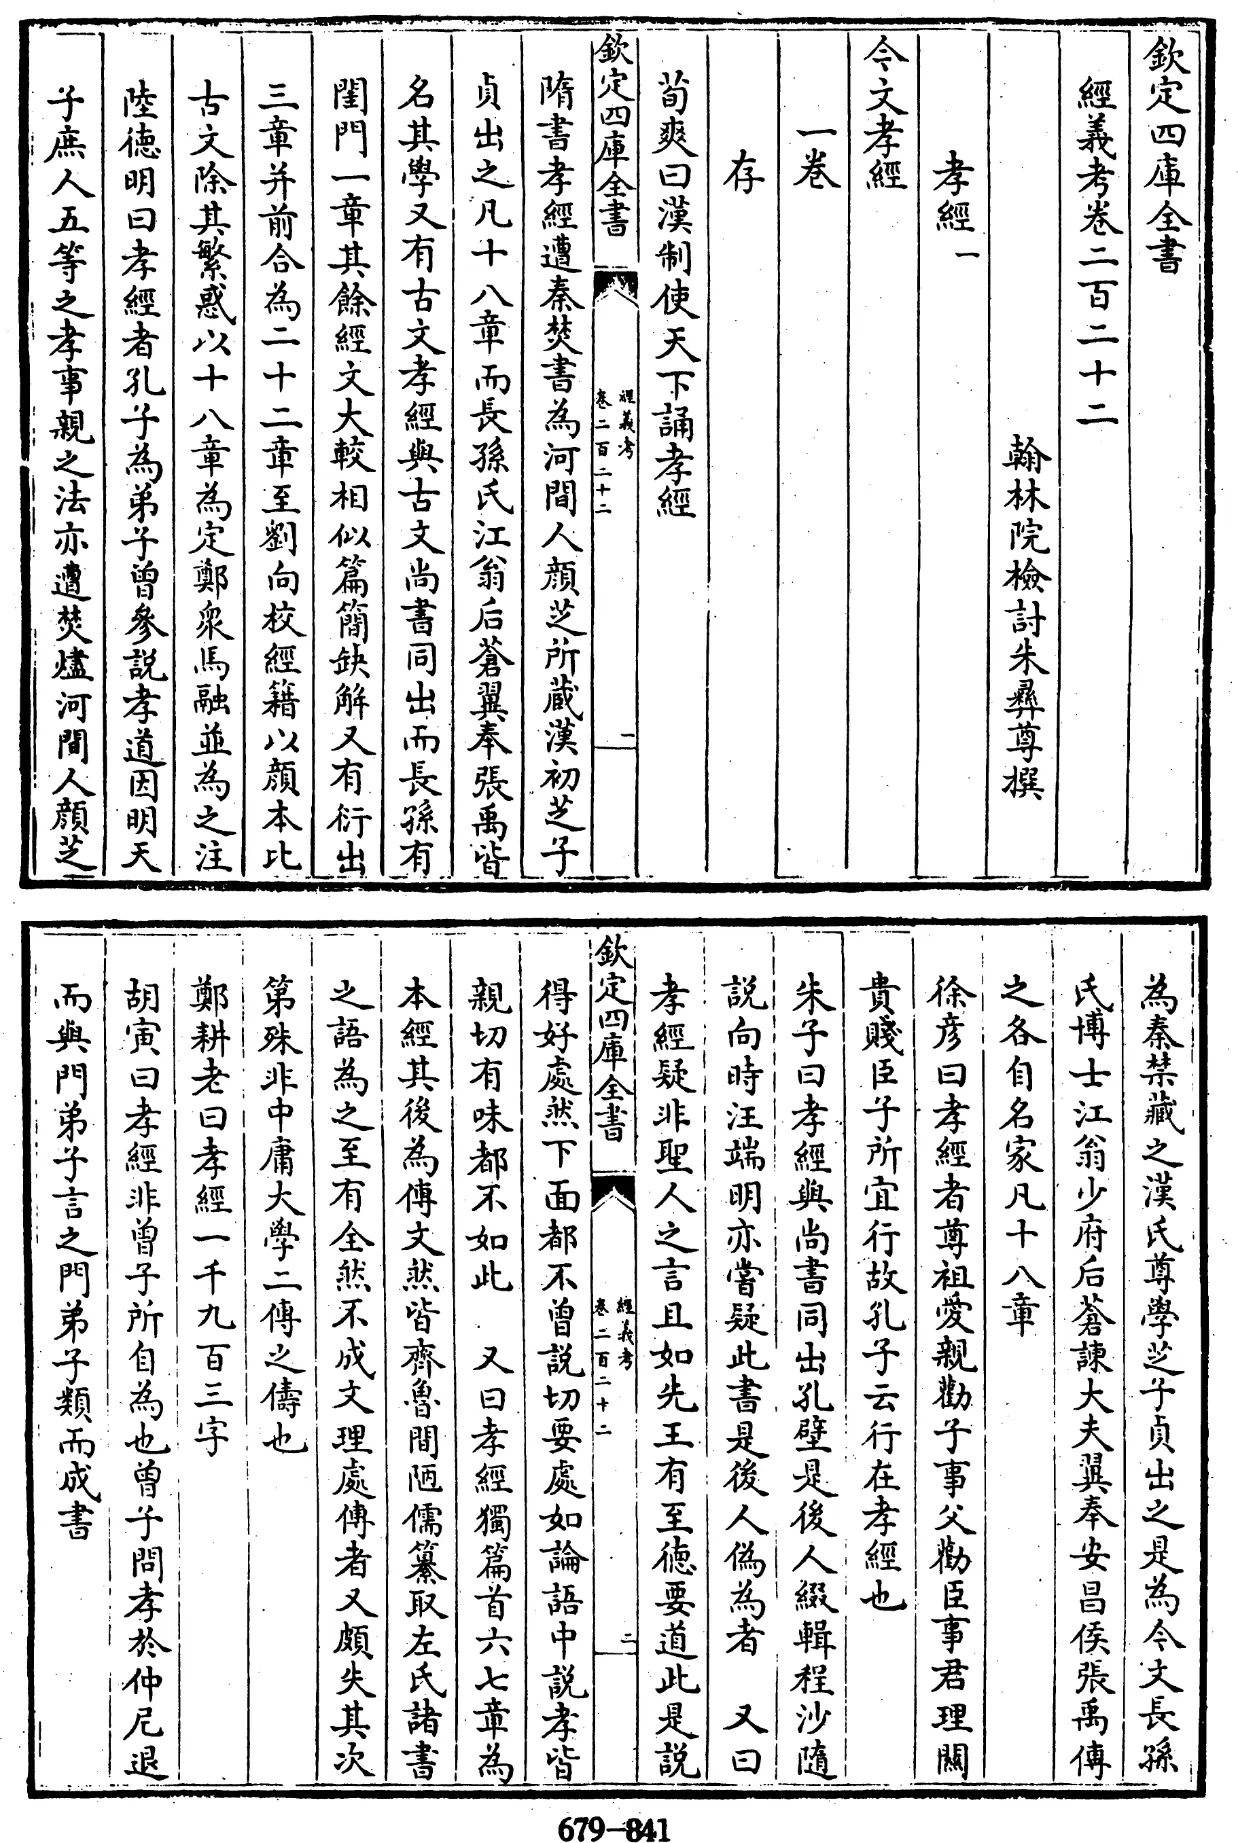 欽定四庫全書
經義考卷二百二十二
翰林院檢討朱彝尊撰
孝經一
今文孝經
一卷
存
荀爽曰漢制使天下誦孝經
欽定四庫全書
經義考
卷二百二十二
一
隋書孝經遭秦焚書為河間人顏芝所蔵漢初芝子
貞出之凡十八章而長孫氏江翁后蒼翼奉張禹皆
名其學又有古文孝經與古文尚書同出而長孫有
閨門一章其餘經文大較相似篇簡缺解又有衍出
三章并前合為二十二章至劉向校經籍以顏本比
古文除其繁惑以十八章為定鄭衆馬融並為之注
陸德明曰孝經者孔子為弟子曾參説孝道因明天
子庶人五等之孝事親之法亦遭焚燼河間人顏芝
為秦禁藏之漢氏尊學芝子貞出之是為今文長孫
氏博士江翁少府后蒼諫大夫翼奉安昌侯張禹傳
之各自名家凡十八章
徐彦曰孝經者尊祖愛親勸子事父勸臣事君理關
貴賤臣子所宜行故孔子云行在孝經也
朱子曰孝經與尚書同出孔壁是後人綴輯程沙隨
説向時汪端明亦嘗疑此書是後人偽為者　又曰
孝經疑非聖人之言且如先王有至德要道此是説
欽定四庫全書
經義考
卷二百二十二
二
得好處然下面都不曾説切要處如論語中説孝皆
親切有味都不如此　又曰孝經獨篇首六七章為
本經其後為傳文然皆齊魯間陋儒纂取左氏諸書
之語為之至有全然不成文理處傳者又頗失其次
第殊非中庸大學二傳之儔也
鄭耕老曰孝經一千九百三字
胡寅曰孝經非曾子所自為也曾子問孝於仲尼退
而與門弟子言之門弟子類而成書
679-841